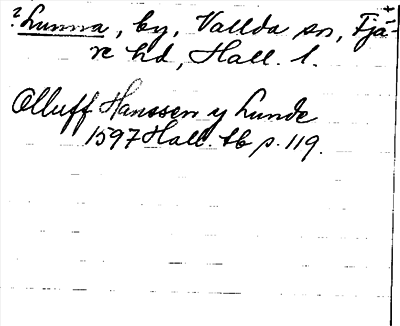 ? Lunna, by, Vallda sn, Fjä-
re hd, Hall. l.
Olluff Hanssen y Lunde
1597 Hall. tb p. 119.